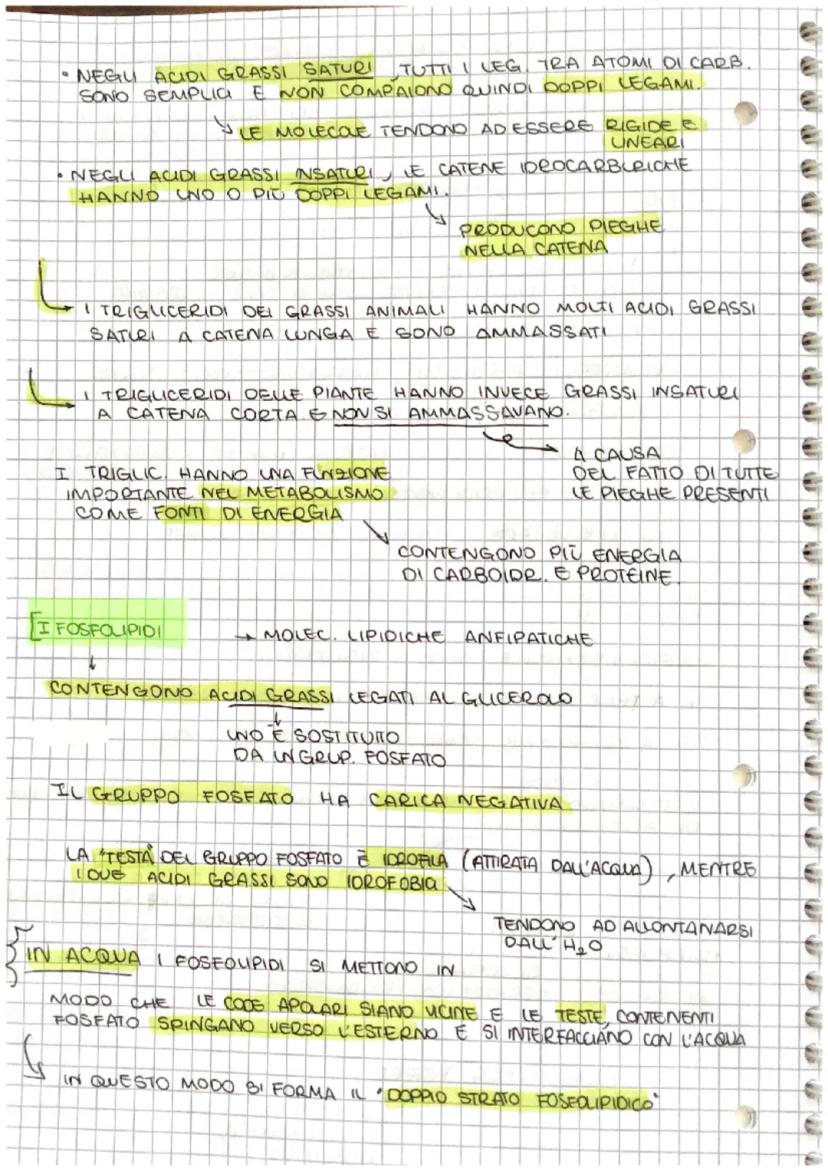 • NEGLI ACIDI GRASSI SATURI, TUTTI I LEG. TRA ATOMI DI CARB.
SONO SEMPLICI E NON COMPAIONO QUINDI DOPPI LEGAMI.
↳ LE MOLECOLE TENDONO AD ESSERE RIGIDE E
LINEARI
• NEGLI ACIDI GRASSI INSATURI, LE CATENE IDROCARBURICHE
HANNO UNO O PIÙ DOPPI LEGAMI.
↳ PRODUCONO PIEGHE
NELLA CATENA
→ I TRIGLICERIDI DEI GRASSI ANIMALI HANNO MOLTI ACIDI GRASSI
SATURI A CATENA LUNGA E SONO AMMASSATI
→ I TRIGLICERIDI DELLE PIANTE HANNO INVECE GRASSI INSATURI
A CATENA CORTA E NON SI AMMASSAVANO.
→ A CAUSA
DEL FATTO DI TUTTE
LE PIEGHE PRESENTI
I TRIGLIC. HANNO UNA FUNZIONE
IMPORTANTE NEL METABOLISMO
COME FONTI DI ENERGIA
↘ CONTENGONO PIÙ ENERGIA
DI CARBOIDR. E PROTEINE.
[I FOSFOLIPIDI → MOLEC. LIPIDICHE ANFIPATICHE
↓
CONTENGONO ACIDI GRASSI LEGATI AL GLICEROLO
↓
UNO È SOSTITUITO
DA UN GRUP. FOSFATO
IL GRUPPO FOSFATO HA CARICA NEGATIVA
LA "TESTA" DEL GRUPPO FOSFATO È IDROFILA (ATTIRATA DALL'ACQUA), MENTRE
I DUE ACIDI GRASSI SONO IDROFOBIA
↘ TENDONO AD ALLONTANARSI
DALL'H₂O
{ IN ACQUA I FOSFOLIPIDI SI METTONO IN
MODO CHE LE CODE APOLARI SIANO VICINE E LE TESTE, CONTENENTI
FOSFATO SPINGANO VERSO L'ESTERNO E SI INTERFACCIANO CON L'ACQUA
↳ IN QUESTO MODO SI FORMA IL "DOPPIO STRATO FOSFOLIPIDICO"